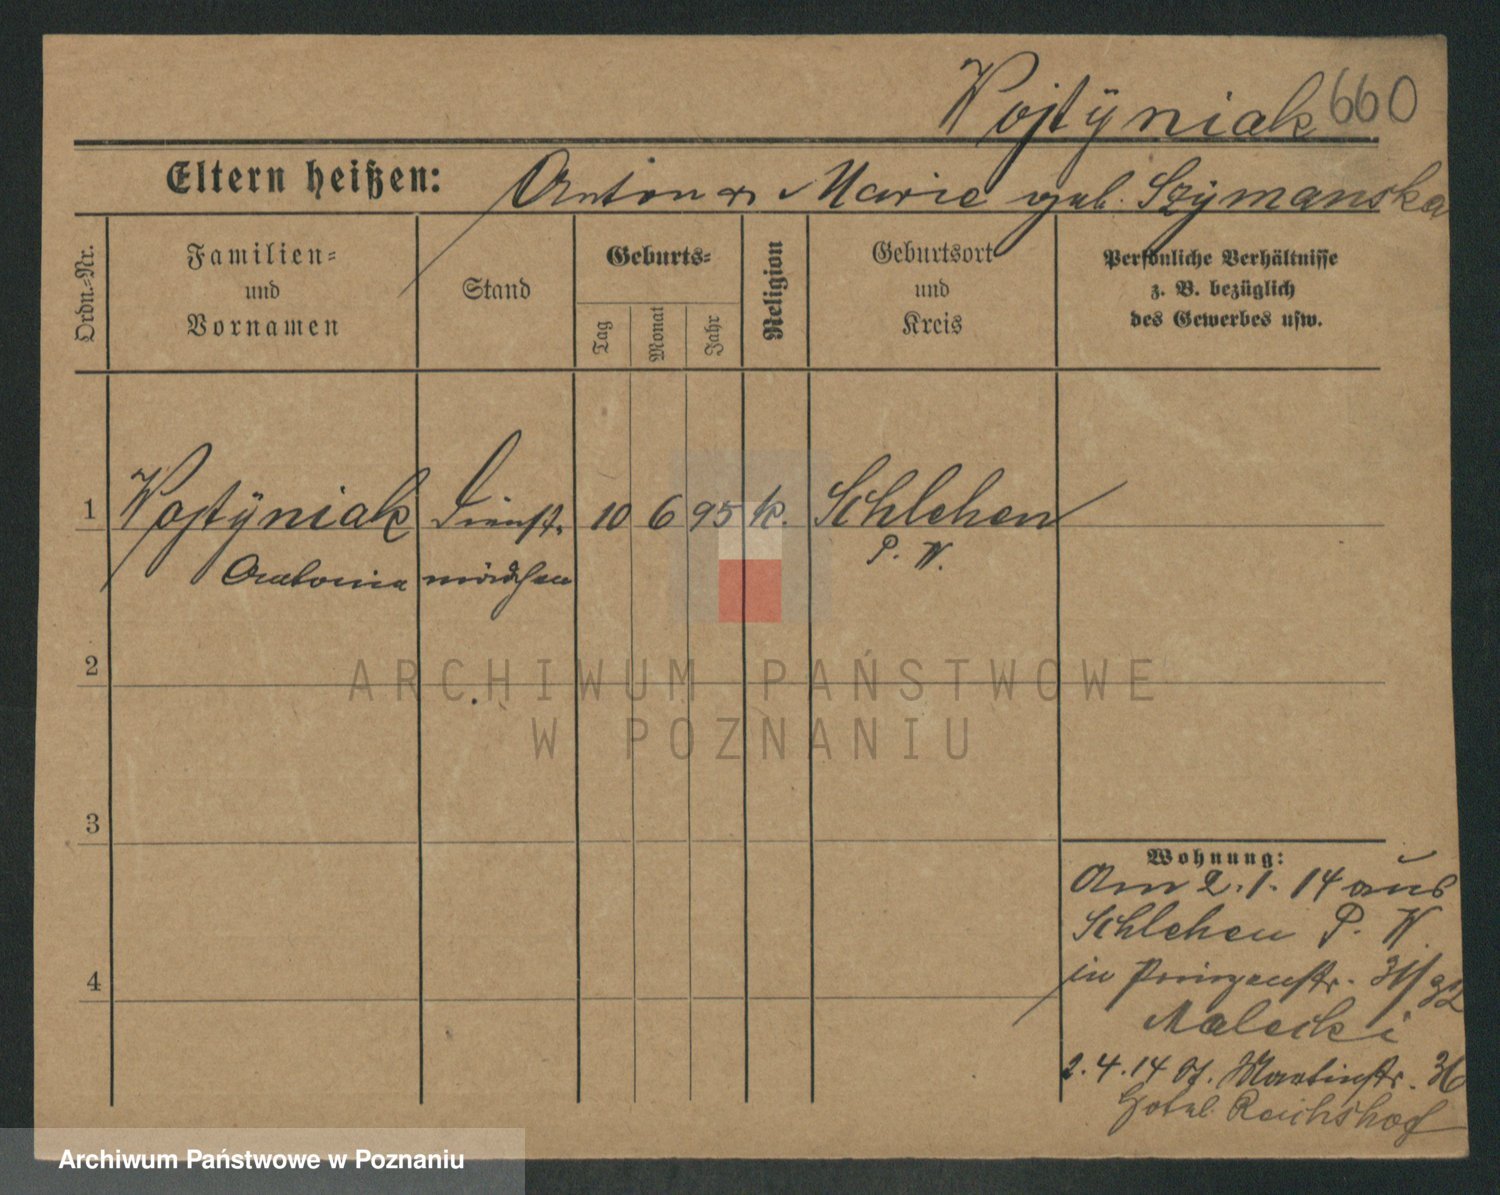 Wojtÿniak 660
Eltern heißen: Anton u Marie geb. Szÿmanska
Ordn.-Nr.
Familien-
und
Vornamen
Stand
Geburts-
Tag
Monat
Jahr
Religion
Geburtsort
und
Kreis
Persönliche Verhältnisse
z. B. bezüglich
des Gewerbes usw.
1 Wojtÿniak Dienst- 10 6 95 k. Schlehen
Antonie mädchen P. W.
2
3
4
Wohnung:
Am 2.1.14 aus
Schlehen P. W.
in Prinzenstr.
Malecki
2.4.14 St. Martinstr. 36
Hotel Reichshof
ARCHIWUM PAŃSTWOWE
W POZNANIU
Archiwum Państwowe w Poznaniu